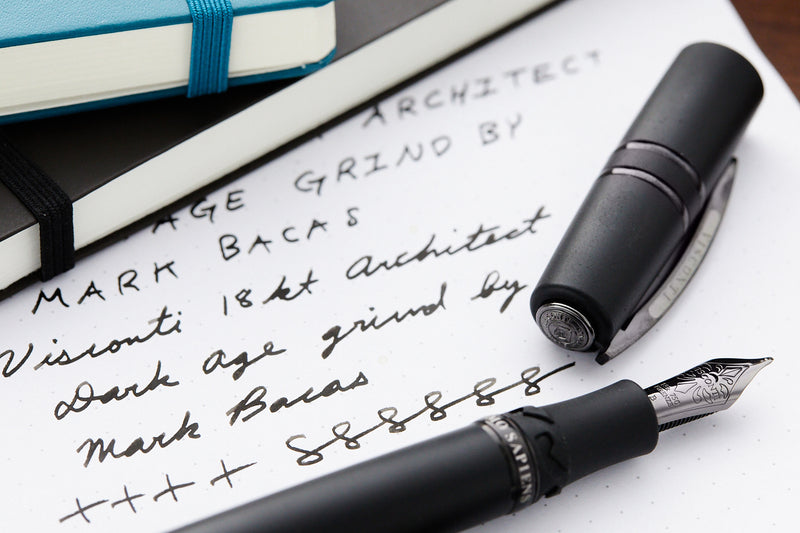 ARCHITECT
AGE GRIND BY
MARK BACAS
Visconti 18kt Architect
Dark age grind by
Mark Bacas
++++ 888888
VISCONTI
HOMO SAPIENS